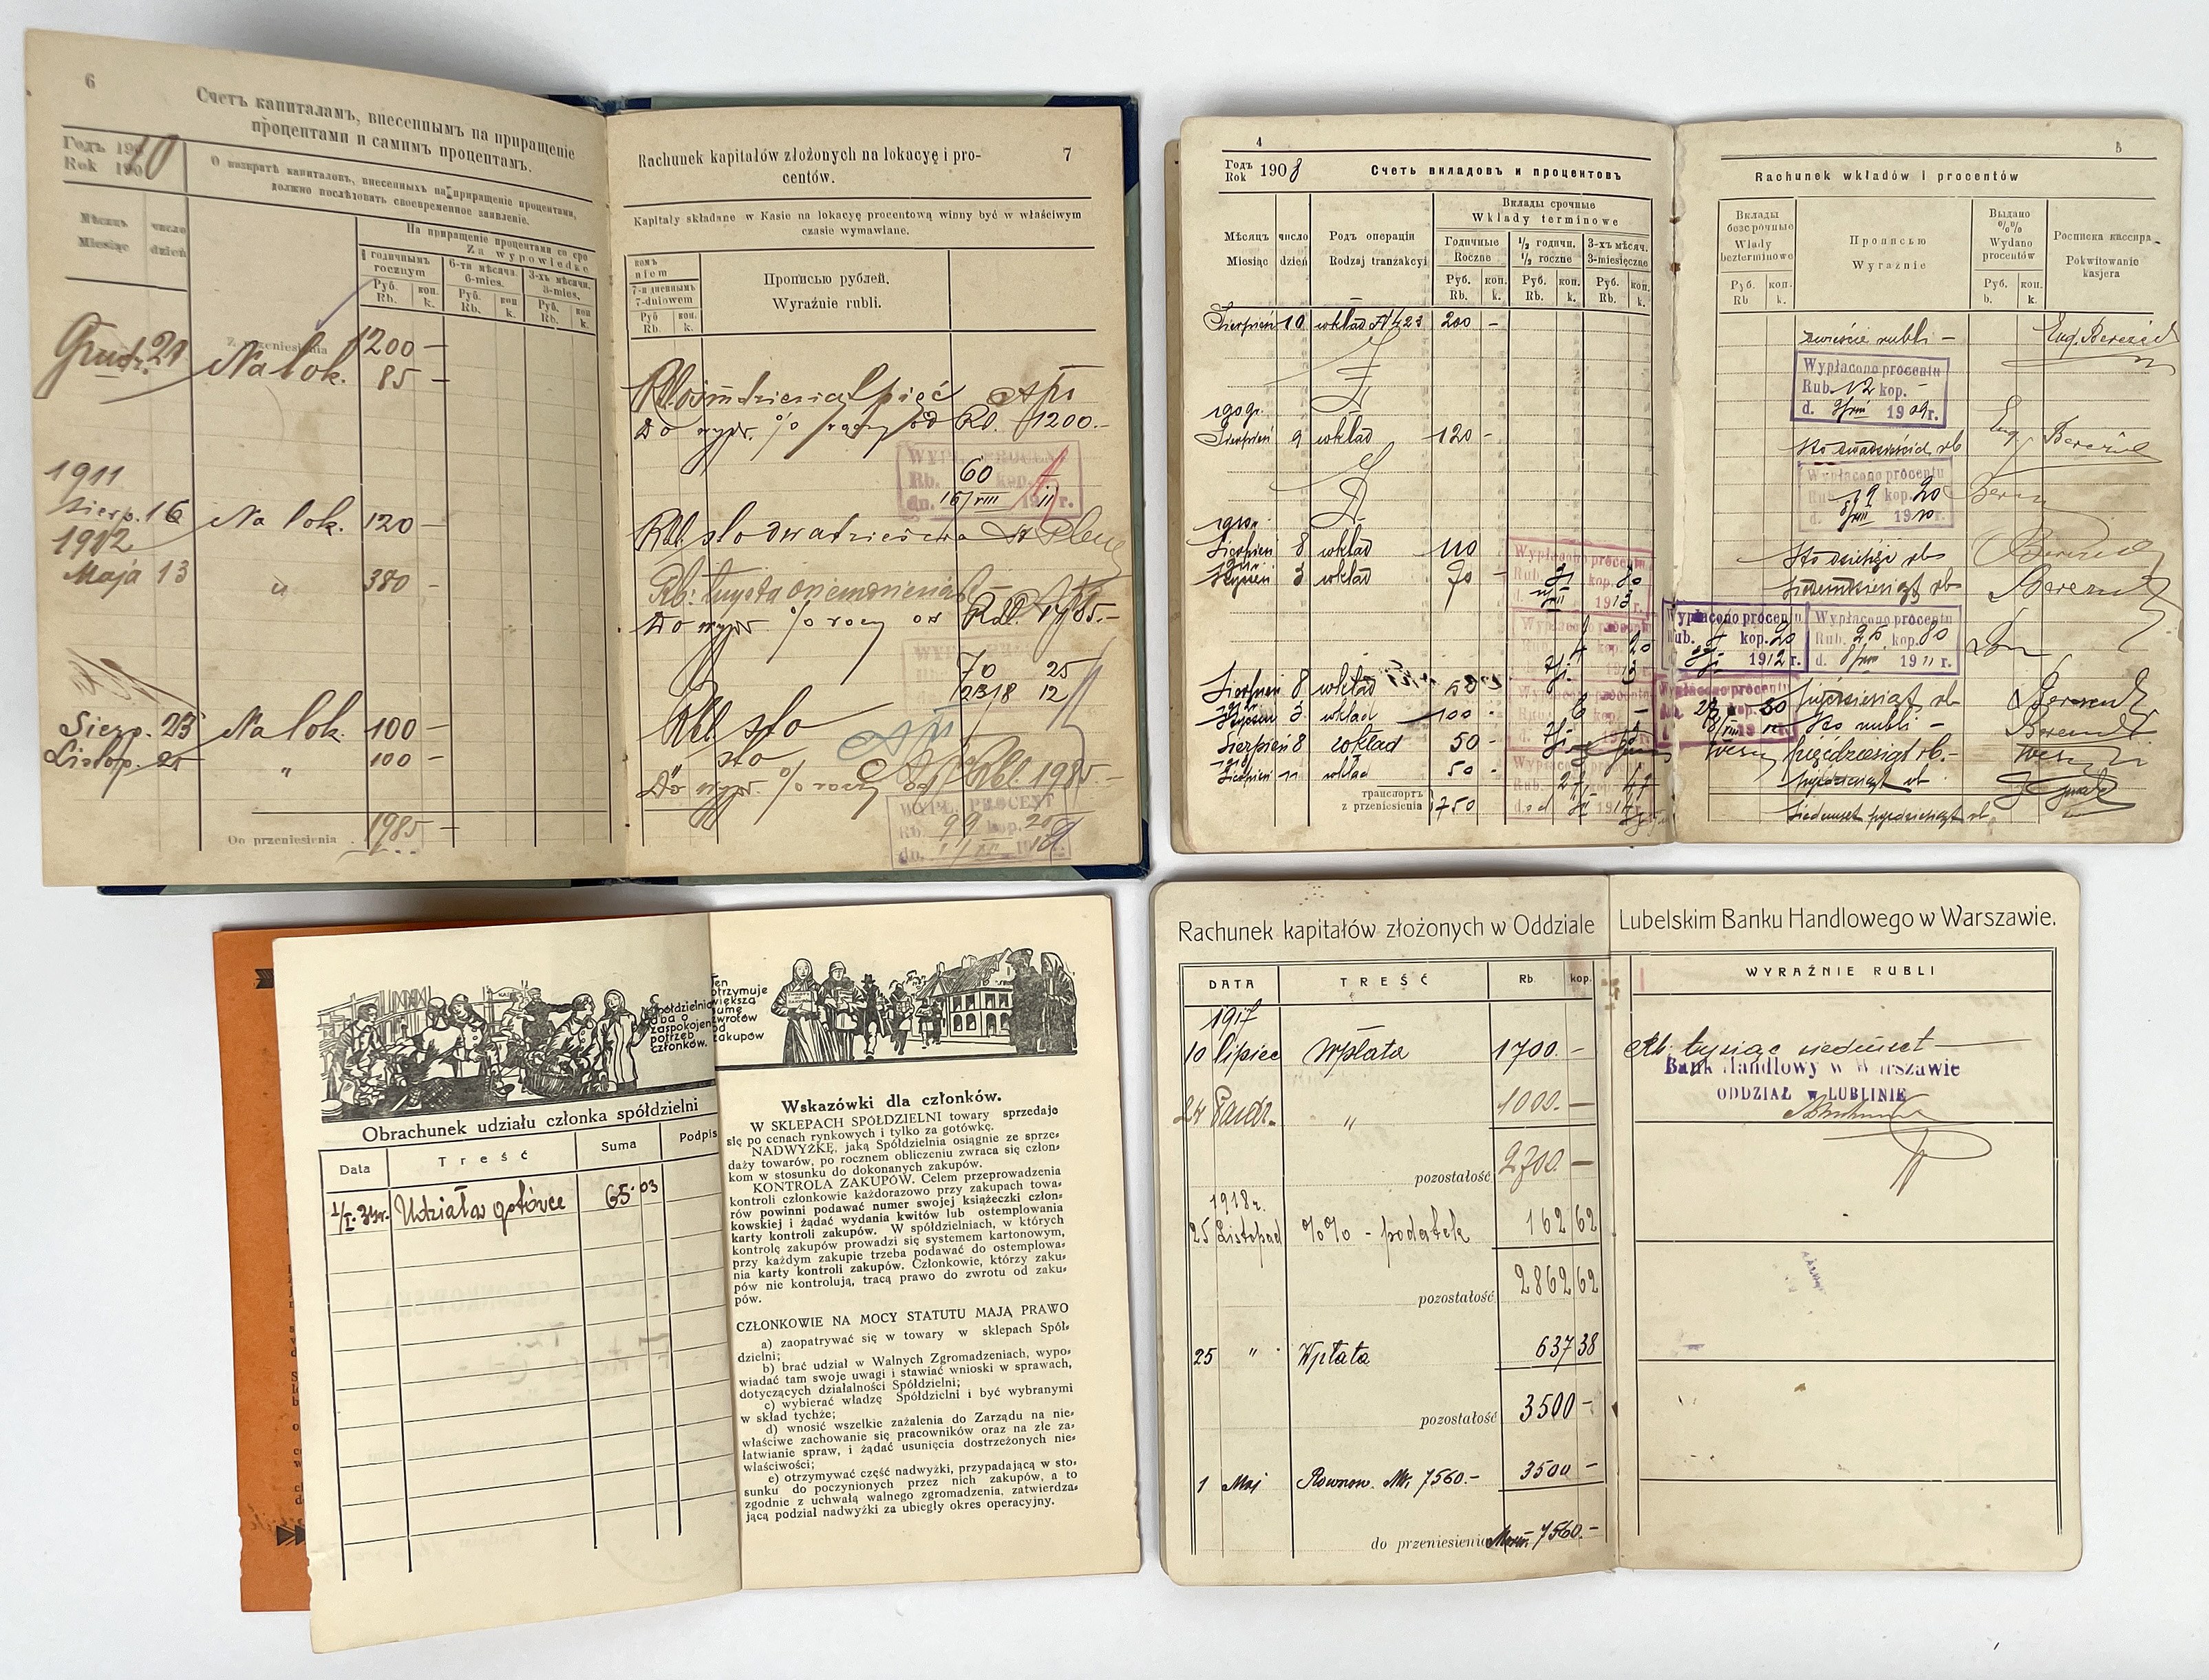 6
Счетъ капиталамъ, внесеннымъ на приращеніе
процентами и самимъ процентамъ.
Годъ 190
Rok 190
10
О возвратѣ капиталовъ, внесенныхъ на приращеніе процентами,
должно послѣдовать своевременное заявленіе.
Мѣсяцъ число
Miesiąc dzień
На приращеніе процентами со сро
Za wypowiedze
годичнымъ 6-ти мѣсячн. 3-хъ мѣсячн.
rocznym 6-mies. 3-mies.
Руб. коп. Руб. коп. Руб. коп
Rb. k. Rb. k. Rb. k.
Z przeniesienia 1200 —
Grudz. 21 Na lok. 85 —
1911
Sierp. 16 Na lok. 120 —
1912
Maja 13 " 380 —
Sierp. 23 Na lok. 100 —
Listop. 25 " 100 —
Do przeniesienia 1985 —
Rachunek kapitałów złożonych na lokacyę i pro-
centów.
7
Kapitały składane w Kasie na lokacyę procentową winny być w właściwym
czasie wymawiane.
номъ
niem
7-и дневнымъ
7-dniowem
Руб коп.
Rb. k.
Прописью рублей.
Wyraźnie rubli.
Rbl. ośmdziesiąt pięć
Do wypr. % roczn od Rb. 1200.—
WYPŁ. PROCENT
Rb. 60 kop.
dn. 16/VIII 1911 r.
Rbl. sto dwadzieścia
Rb. trzysta ośmdziesiąt —
Do wypr. % roczn od Rbl. 1785.—
70 25
23 18 12
Rbl. sto
sto
Do wypr. % roczn od Rbl. 1985.—
WYPŁ. PROCENT
Rb. 99 kop. 25
4
Годъ
Rok 1908
Счетъ вкладовъ и процентовъ
Мѣсяцъ число Родъ операціи
Miesiąc dzień Rodzaj tranzakcyi
Вклады срочные
Wkłady terminowe
Годичные ½ годичн. 3-хъ мѣсяч.
Roczne ½ roczne 3-miesięczne
Руб. коп. Руб. коп. Руб. коп.
Rb. k. Rb. k. Rb. k.
Sierpień 10 wkład № 423 200 —
1909 r.
Sierpień 9 wkład 120 —
1910 r.
Sierpień 8 wkład 110
Styczeń 3 wkład 70 —
Wypłacono procentu
Rub. 31 kop. 80
1913 r.
Sierpień 8 wkład 50
Styczeń 3 wkład 100 -
Sierpień 8 wkład 50 -
Sierpień 11 wkład 50 -
транспортъ
z przeniesienia 750
5
Rachunek wkładów i procentów
Вклады
безсрочные
Wkłady
bezterminowe
Руб коп.
Rb k.
Прописью
Wyraźnie
Выдано
%%
Wydano
procentów
Руб. коп.
b. k.
Росписка кассира.
Pokwitowanie
kasjera
dwieście rubli — Eug. Berezicki
Wypłacono procentu
Rub. 12 kop. -
d. 9/VIII 1909 r.
sto dwadzieścia rb
Wypłacono procentu
Rub. 19 kop. 20
d. 8/VIII 1910 r.
sto dziesięć rb
siedemdziesiąt rb
Wypłacono procentu
Rub. kop. 20
1912 r.
Wypłacono procentu
Rub. 25 kop. 80
d. 8/VIII 1911 r.
Wypłacono procentu
pięćdziesiąt rb
sto rubli —
pięćdziesiąt rb.
pięćdziesiąt rb
siedemset pięćdziesiąt rb.
Spółdzielnia
dba o
zaspokojenie
potrzeb
członków.
Obrachunek udziału członka spółdzielni
Data Treść Suma Podpis
1/I. 34r. Udział w gotówce 65.03
Ten
otrzymuje
większą
sumę
zwrotów
od
zakupów
Wskazówki dla członków.
W SKLEPACH SPÓŁDZIELNI towary sprzedaje
się po cenach rynkowych i tylko za gotówkę.
NADWYŻKĘ, jaką Spółdzielnia osiągnie ze sprze-
daży towarów, po rocznem obliczeniu zwraca się człon-
kom w stosunku do dokonanych zakupów.
KONTROLA ZAKUPÓW. Celem przeprowadzenia
kontroli członkowie każdorazowo przy zakupach towa-
rów powinni podawać numer swojej książeczki człon-
kowskiej i żądać wydania kwitów lub ostemplowania
karty kontroli zakupów. W spółdzielniach, w których
kontrolę zakupów prowadzi się systemem kartonowym,
przy każdym zakupie trzeba podawać do ostemplowa-
nia karty kontroli zakupów. Członkowie, którzy zaku-
pów nie kontrolują, tracą prawo do zwrotu od zaku-
pów.
CZŁONKOWIE NA MOCY STATUTU MAJĄ PRAWO
a) zaopatrywać się w towary w sklepach Spół-
dzielni;
b) brać udział w Walnych Zgromadzeniach, wypo-
wiadać tam swoje uwagi i stawiać wnioski w sprawach,
dotyczących działalności Spółdzielni;
c) wybierać władzę Spółdzielni i być wybranymi
w skład tychże;
d) wnosić wszelkie zażalenia do Zarządu na nie-
właściwe zachowanie się pracowników oraz na złe za-
łatwianie spraw, i żądać usunięcia dostrzeżonych nie-
właściwości;
e) otrzymywać część nadwyżki, przypadającą w sto-
sunku do poczynionych przez nich zakupów, a to
zgodnie z uchwałą walnego zgromadzenia, zatwierdza-
jącą podział nadwyżki za ubiegły okres operacyjny.
Rachunek kapitałów złożonych w Oddziale Lubelskim Banku Handlowego w Warszawie.
DATA TREŚĆ Rb. kop. WYRAŹNIE RUBLI
1917
10 lipiec Wpłata 1700.— Rb. tysiąc siedmset —
Bank Handlowy w Warszawie
ODDZIAŁ w LUBLINIE
24 Paźdz. " 1000.—
pozostałość 2700.—
1918 r.
25 Listopad %% - podatek 162 62
pozostałość 2862 62
25 " Wpłata 637 38
pozostałość 3500 -
1 Maj Równow. Mk. 7560.- 3500 -
do przeniesienia 7560.-